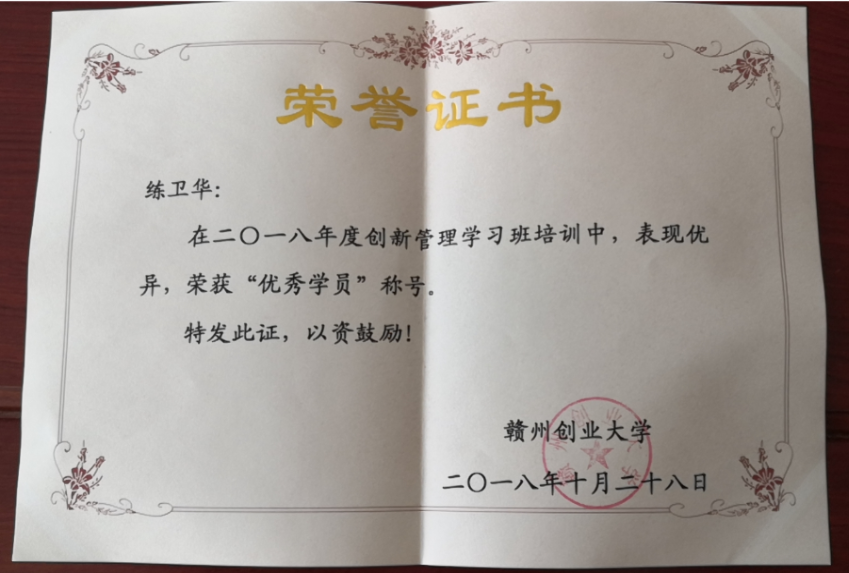 荣誉证书
练卫华：
在二〇一八年度创新管理学习班培训中，表现优
异，荣获“优秀学员”称号。
特发此证，以资鼓励！
赣州创业大学
二〇一八年十月二十八日